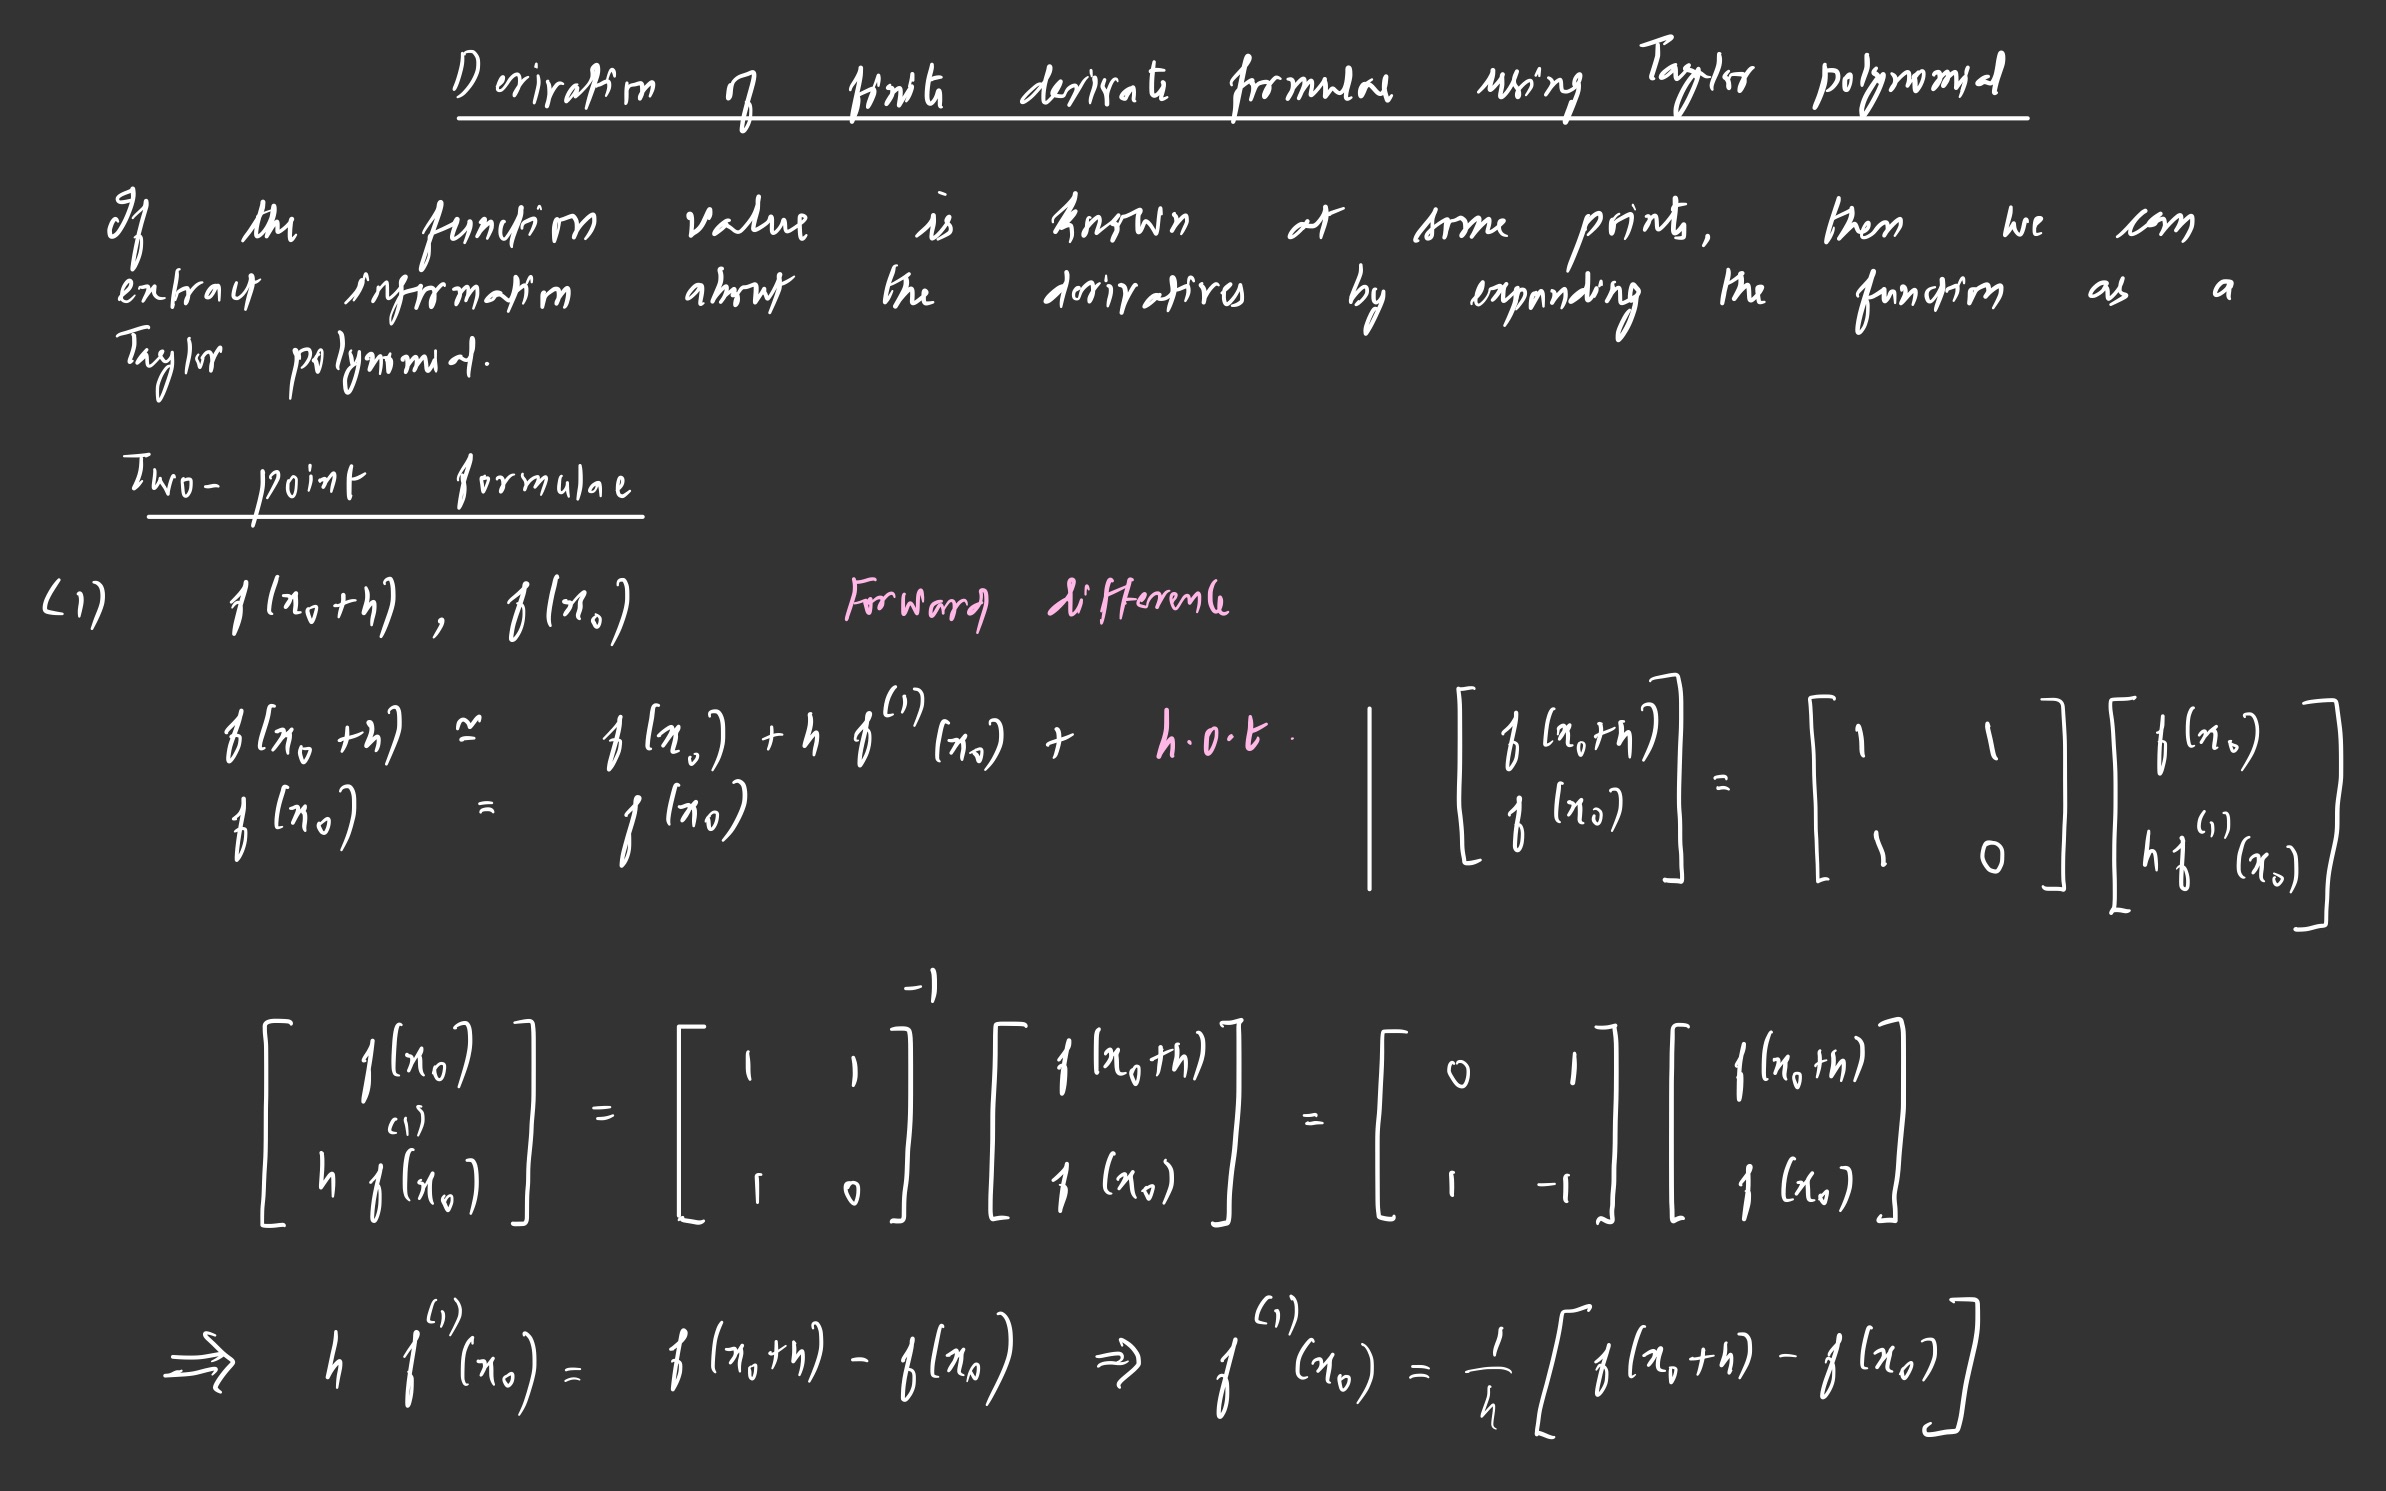 Derivation of first derivative formulae using Taylor polynomial
If the function value is known at some points, then we can
extract information about the derivatives by expanding the function as a
Taylor polynomial.
Two-point formulae
(1) f(x₀+h), f(x₀) Forward difference
f(x₀+h) ≃ f(x₀) + h f⁽¹⁾(x₀) + h.o.t. | [f(x₀+h) ; f(x₀)] = [1 1 ; 1 0] [f(x₀) ; h f⁽¹⁾(x₀)]
f(x₀) = f(x₀)
[f(x₀) ; h f⁽¹⁾(x₀)] = [1 1 ; 1 0]⁻¹ [f(x₀+h) ; f(x₀)] = [0 1 ; 1 -1] [f(x₀+h) ; f(x₀)]
⇒ h f⁽¹⁾(x₀) = f(x₀+h) - f(x₀) ⇒ f⁽¹⁾(x₀) = 1/h [f(x₀+h) - f(x₀)]